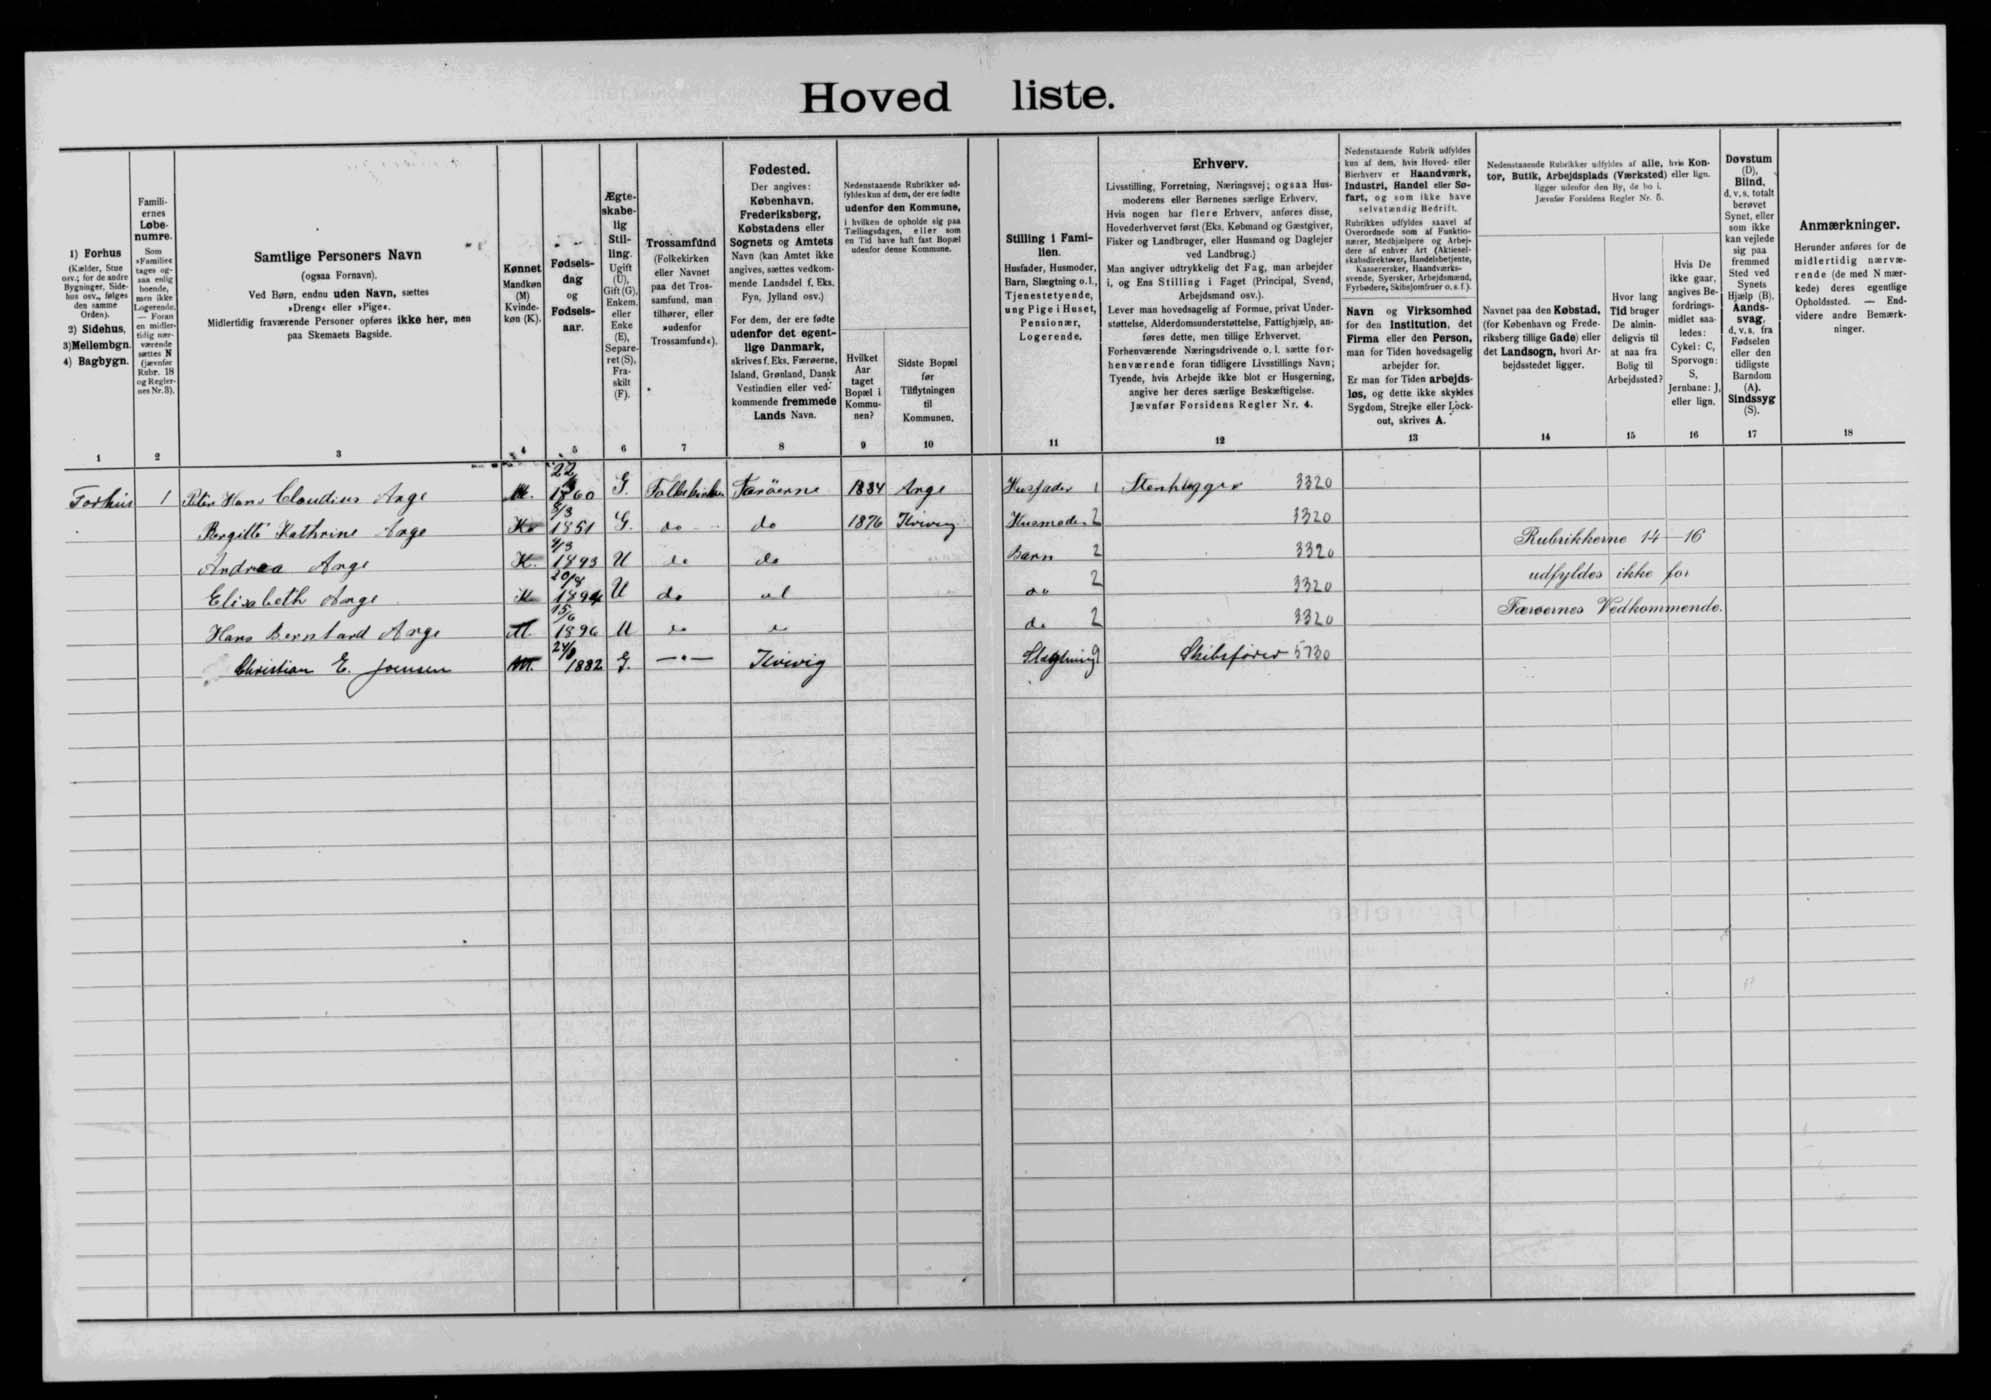 Hoved liste.
1) Forhus
(Kælder, Stue
osv.; for de andre
Bygninger, Side-
hus osv., følges
den samme
Orden).
2) Sidehus,
3) Mellembgn.
4) Bagbygn.
1
Famili-
ernes
Løbe-
numre.
Som
»Familie«
tages og-
saa enlig
boende,
men ikke
Logerende.
— Foran
en midler-
tidig nær-
værende
sættes N
(jævnfør
Rubr. 18
og Regler-
nes Nr. 3).
2
Samtlige Personers Navn
(ogsaa Fornavn).
Ved Børn, endnu uden Navn, sættes
»Dreng« eller »Pige«.
Midlertidig fraværende Personer opføres ikke her, men
paa Skemaets Bagside.
3
Kønnet
Mandkøn
(M)
Kvinde-
køn (K).
4
Fødsels-
dag
og
Fødsels-
aar.
5
Ægte-
skabe-
lig
Stil-
ling.
Ugift
(U),
Gift (G),
Enkem.
eller
Enke
(E),
Separe-
ret (S),
Fra-
skilt
(F).
6
Trossamfund
(Folkekirken
eller Navnet
paa det Tros-
samfund, man
tilhører, eller
»udenfor
Trossamfund«).
7
Fødested.
Der angives:
København,
Frederiksberg,
Købstadens eller
Sognets og Amtets
Navn (kan Amtet ikke
angives, sættes vedkom-
mende Landsdel f. Eks.
Fyn, Jylland osv.)
For dem, der ere fødte
udenfor det egent-
lige Danmark,
skrives f. Eks. Færøerne,
Island, Grønland, Dansk
Vestindien eller ved-
kommende fremmede
Lands Navn.
8
Nedenstaaende Rubrikker ud-
fyldes kun af dem, der ere fødte
udenfor den Kommune,
i hvilken de opholde sig paa
Tællingsdagen, eller som
en Tid have haft fast Bopæl
udenfor denne Kommune.
Hvilket
Aar
taget
Bopæl i
Kommu-
nen?
9
Sidste Bopæl
før
Tilflytningen
til
Kommunen.
10
Stilling i Fami-
lien.
Husfader, Husmoder,
Barn, Slægtning o.l.,
Tjenestetyende,
ung Pige i Huset,
Pensionær,
Logerende.
11
Erhverv.
Livsstilling, Forretning, Næringsvej; ogsaa Hus-
moderens eller Børnenes særlige Erhverv.
Hvis nogen har flere Erhverv, anføres disse,
Hovederhvervet først (Eks. Købmand og Gæstgiver,
Fisker og Landbruger, eller Husmand og Daglejer
ved Landbrug.)
Man angiver udtrykkelig det Fag, man arbejder
i, og Ens Stilling i Faget (Principal, Svend,
Arbejdsmand osv.).
Lever man hovedsagelig af Formue, privat Under-
støttelse, Alderdomsunderstøttelse, Fattighjælp, an-
føres dette, men tillige Erhvervet.
Forhenværende Næringsdrivende o. l. sætte for-
henværende foran tidligere Livsstillings Navn;
Tyende, hvis Arbejde ikke blot er Husgerning,
angive her deres særlige Beskæftigelse.
Jævnfør Forsidens Regler Nr. 4.
12
Nedenstaaende Rubrik udfyldes
kun af dem, hvis Hoved- eller
Bierhverv er Haandværk,
Industri, Handel eller Sø-
fart, og som ikke have
selvstændig Bedrift.
Rubrikken udfyldes saavel af
Overordnede som af Funktio-
nærer, Medhjælpere og Arbej-
dere af enhver Art (Aktiesel-
skabsdirektører, Handelsbetjente,
Kasserersker, Haandværks-
svende, Syersker, Arbejdsmænd,
Fyrbødere, Skibsjomfruer o. s. f.).
Navn og Virksomhed
for den Institution, det
Firma eller den Person,
man for Tiden hovedsagelig
arbejder for.
Er man for Tiden arbejds-
løs, og dette ikke skyldes
Sygdom, Strejke eller Lock-
out, skrives A.
13
Nedenstaaende Rubrikker udfyldes af alle, hvis Kon-
tor, Butik, Arbejdsplads (Værksted) eller lign.
ligger udenfor den By, de bo i.
Jævnfør Forsidens Regler Nr. 5.
Navnet paa den Købstad,
(for København og Frede-
riksberg tillige Gade) eller
det Landsogn, hvori Ar-
bejdsstedet ligger.
14
Hvor lang
Tid bruger
De almin-
deligvis til
at naa fra
Bolig til
Arbejdssted?
15
Hvis De
ikke gaar,
angives Be-
fordrings-
midlet saa-
ledes:
Cykel: C,
Sporvogn:
S,
Jernbane: J,
eller lign.
16
Døvstum
(D),
Blind,
d. v. s. totalt
berøvet
Synet, eller
som ikke
kan vejlede
sig paa
fremmed
Sted ved
Synets
Hjælp (B).
Aands-
svag,
d. v. s. fra
Fødselen
eller den
tidligste
Barndom
(A).
Sindssyg
(S).
17
Anmærkninger.
Herunder anføres for de
midlertidig nærvæ-
rende (de med N mær-
kede) deres egentlige
Opholdssted. — End-
videre andre Bemærk-
ninger.
18
Forhus 1 Peter Hans Claudius Arge M. 1860 G. Folkekirken Færöerne 1884 Arge Husfader 1 Stenhugger 3320
Bergitte Kathrine Arge K 8/3 1851 G. do do 1876 Kvivig Husmoder 2 3320
Andrea Arge K. 4/3 1893 U do do Barn 2 3320
Elisabeth Arge K 20/8 1894 U do do 2 3320
Hans Berntard Arge M. 15/6 1896 U do 2 3320
Christian E. Joensen M. 1882 G. —"— Kvivig Slægtning 9 Skibsfører 5730
Rubrikkerne 14—16
udfyldes ikke for
Færøernes Vedkommende.